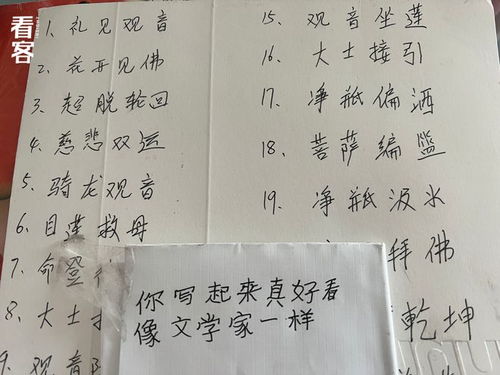 看客
1、礼见观音
2、花开见佛
3、超脱轮回
4、慈悲双运
5、骑龙观音
6、目莲救母
7、命登
8、大士
9、观音
15、观音坐莲
16、大士接引
17、净瓶偏洒
18、菩萨编篮
19、净瓶汲水
拜佛
乾坤
你写起来真好看
像文学家一样